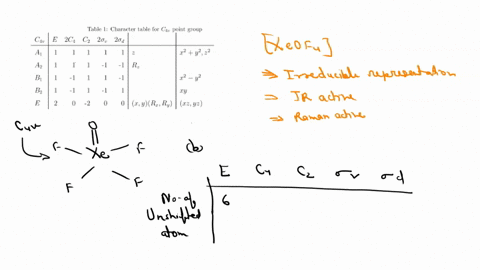 Table 1: Character table for C4v point group
C4v E 2C4 C2 2σv 2σd
A1 1 1 1 1 1 z x² + y², z²
A2 1 1 1 -1 -1 Rz
B1 1 -1 1 1 -1 x² − y²
B2 1 -1 1 -1 1 xy
E 2 0 -2 0 0 (x, y)(Rx, Ry) (xz, yz)
[XeOF4]
⇒ Irreducible representation
⇒ IR active
⇒ Raman active
C4v
O
F Xe F
F F
(b)
E C4 C2 σv σd
No. of 6
Unshifted
atom